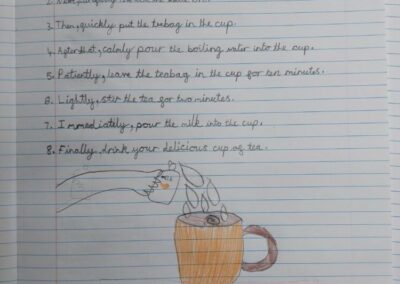 3. Then, quickly put the teabag in the cup.
4. After that, calmly pour the boiling water into the cup.
5. Patiently, leave the teabag in the cup for ten minutes.
6. Lightly, stir the tea for two minutes.
7. Immediately, pour the milk into the cup.
8. Finally drink your delicious cup of tea.